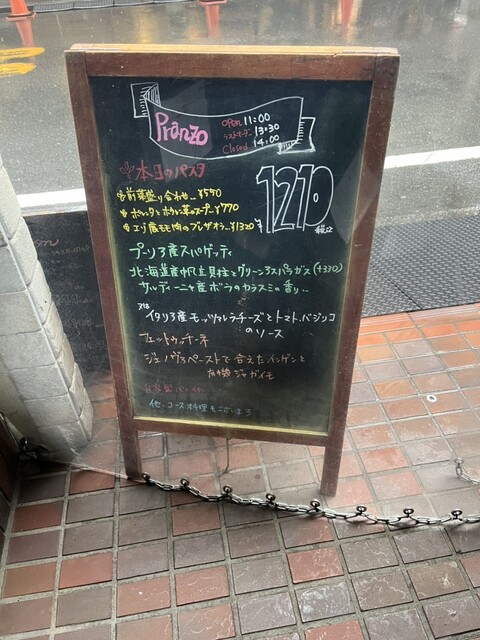 Pranzo
open 11:00
ラストオーダー 13:30
Closed 14:00
本日のパスタ
¥1210 税込
前菜盛り合わせ...¥550
ポレンタとホウレン草のスープ...¥770
エゾ鹿モモ肉のブレザオラ...¥1320
プーリア産スパゲッティ
北海道産帆立貝柱とグリーンアスパラガス(+330)
サルディーニャ産ボラのカラスミの香り...
又は
イタリア産モッツァレラチーズとトマト、バジリコ
のソース
フェットゥッチーネ
ジェノヴァペーストで合えたインゲンと
有機ジャガイモ
自家製パン付
他、コース料理もございます